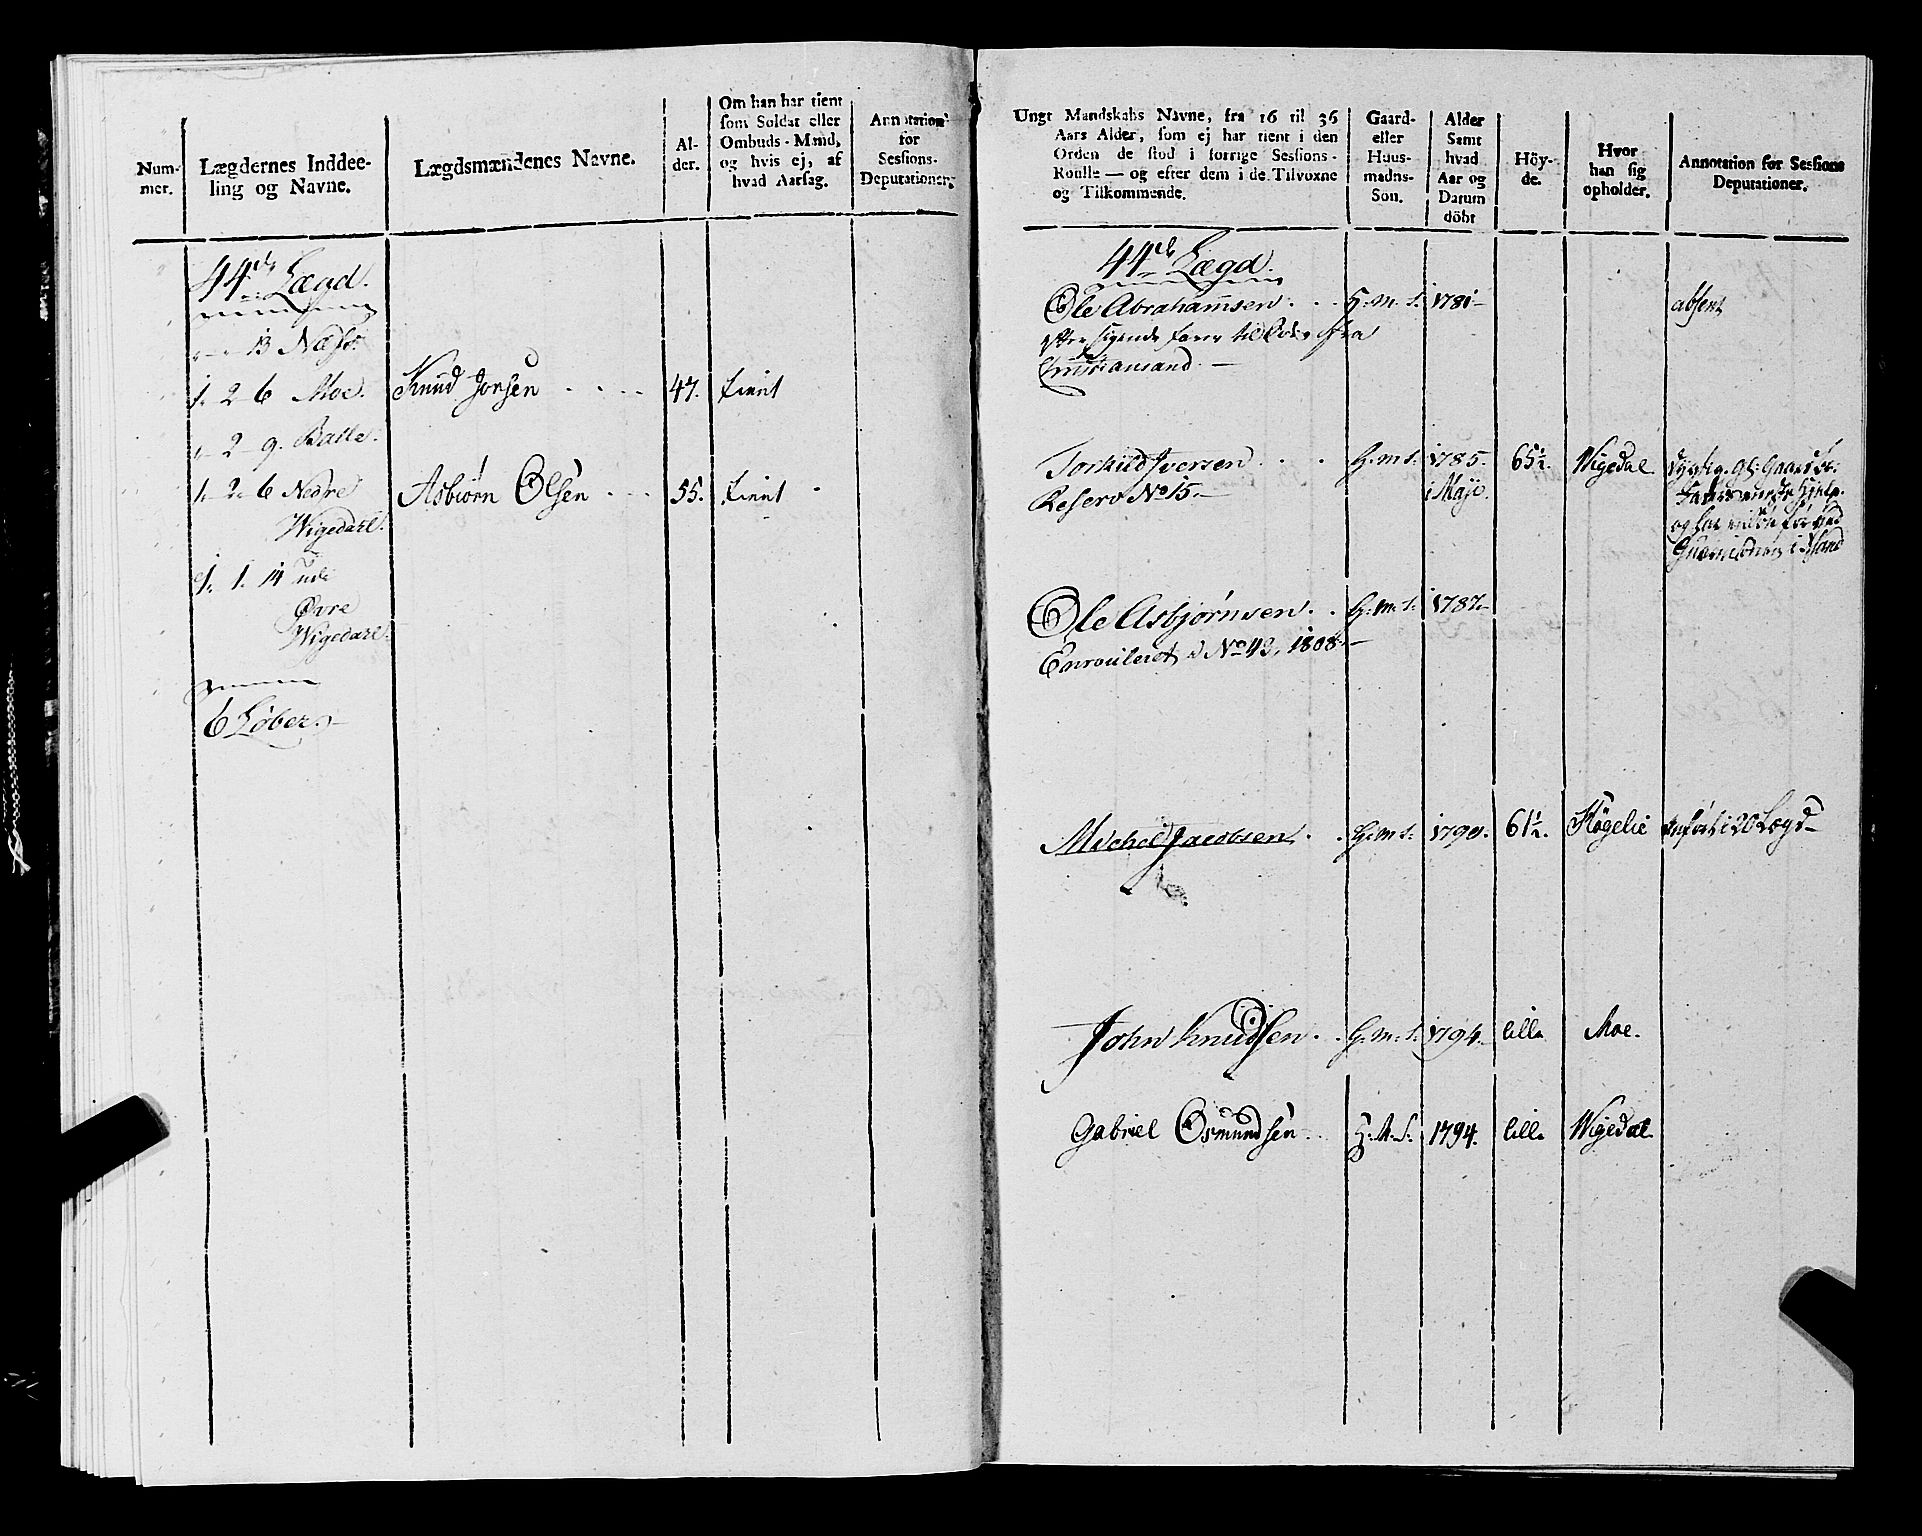 Num-
mer.
Lægdernes Inddee-
ling og Navne.
Lægdsmændenes Navne.
Al-
der.
Om han har tient
som Soldat eller
Ombuds-Mand,
og hvis ej, af
hvad Aarsag.
Annotation
for
Sessions-
Deputationer.
44de Lægd.
13 Næss.
1. 2 - 6 Moe. Knud Jonsen 47. tient
2 - 9.
1. 2. 6 Nedre Asbiørn Olsen 55. tient
Wigedahl.
1. 1. 14 ude
Øvre
Wigedahl.
6 Løber.
Ungt Mandskabs Navne, fra 16 til 36
Aars Alder, som ej har tient i den
Orden de stod i forrige Sessions-
Roulle — og efter dem i de Tilvoxne
og Tilkommende.
Gaard-
eller
Huus-
mands-
Søn.
Alder
Samt
hvad
Aar og
Datum
döbt
Höy-
de.
Hvor
han sig
opholder.
Annotation for Sessions
Deputationer.
44de Lægd.
Ole Abrahamsen H. m. S. 1781 absent
efter sigende farer til fra
Christiansand.
Torkild Iversen G. m. S. 1785. 65½. Wigedal dygtig.
Reserv No 15. i Maje.
og
i
Ole Asbjørnsen G. m. S. 1787
Enroulleret i No 43, 1808
Michel Jacobsen G. m S. 1790. 61½. Høgelie anført i 20 Lægd
John Knudsen G. m. S. 1794. lille Moe.
Gabriel Osmundsen H. M. S. 1794. lille Wigedal